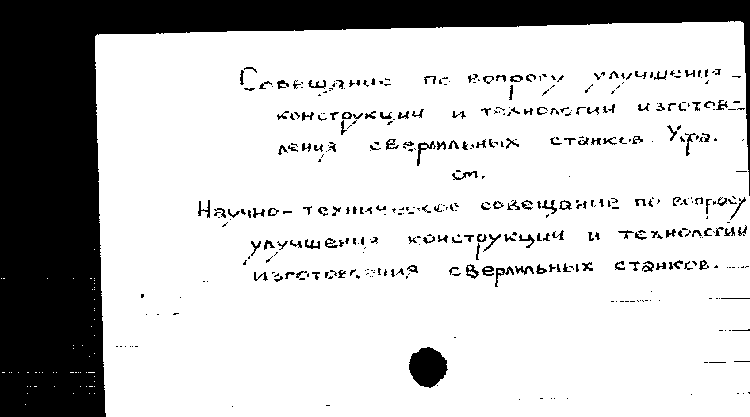 Совещание по вопросу улучшения
конструкции и технологии изготов-
ления сверлильных станков. Уфа.
см.
Научно-техническое совещание по вопросу
улучшения конструкции и технологии
изготовления сверлильных станков.